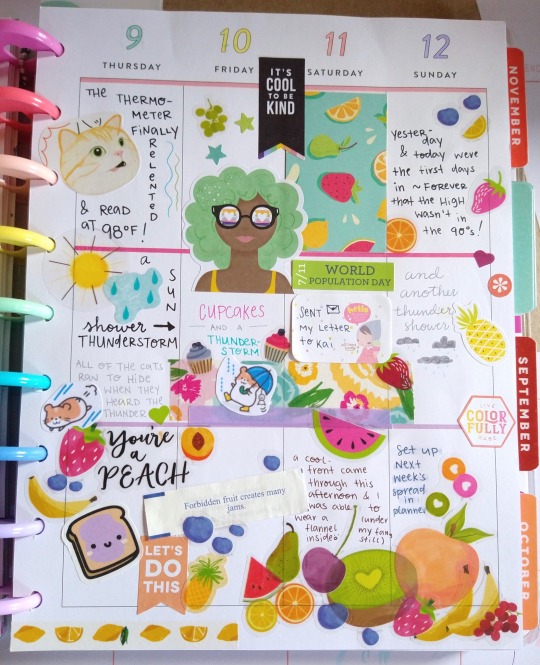 9
THURSDAY
10
FRIDAY
11
SATURDAY
12
SUNDAY
IT'S
COOL
TO BE
KIND
THE THERMO-
METER
FINALLY
RELENTED
& READ
AT 98°F!
YESTER-
day
& today were
the first days
in ~ FOREVER
that the High
wasn't in
the 90's!
a
SUN
shower →
THUNDERSTORM
ALL OF THE CATS
RAN TO HIDE
WHEN THEY
HEARD THE
THUNDER
CUPCAKES
AND A
THUNDER-
STORM
7/11
WORLD
POPULATION DAY
SENT
MY LETTER
to Kai
hello
and
another
thunder
shower
LIVE
COLOR
FULLY
You're
a
PEACH
Forbidden fruit creates many
jams.
LET'S
DO
THIS
a cool
front came
through this
afternoon & I
was able to
wear a
flannel
inside
(under
my fan,
still)
Set up
Next
week's
spread
in
planner
NOVEMBER
SEPTEMBER
OCTOBER